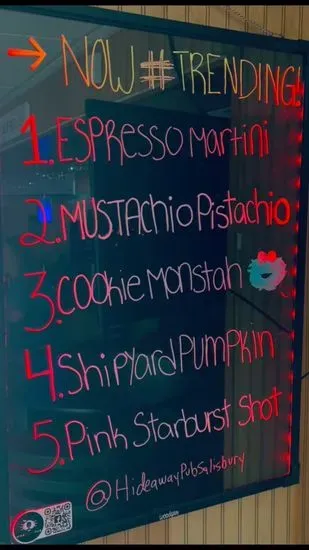 → NOW #TRENDING!
1. ESPRESSO Martini
2. MUSTAchio Pistachio
3. COOkie Monstah
4. ShipYard PUMPKin
5. Pink Starburst Shot
@HideawayPubsalisbury